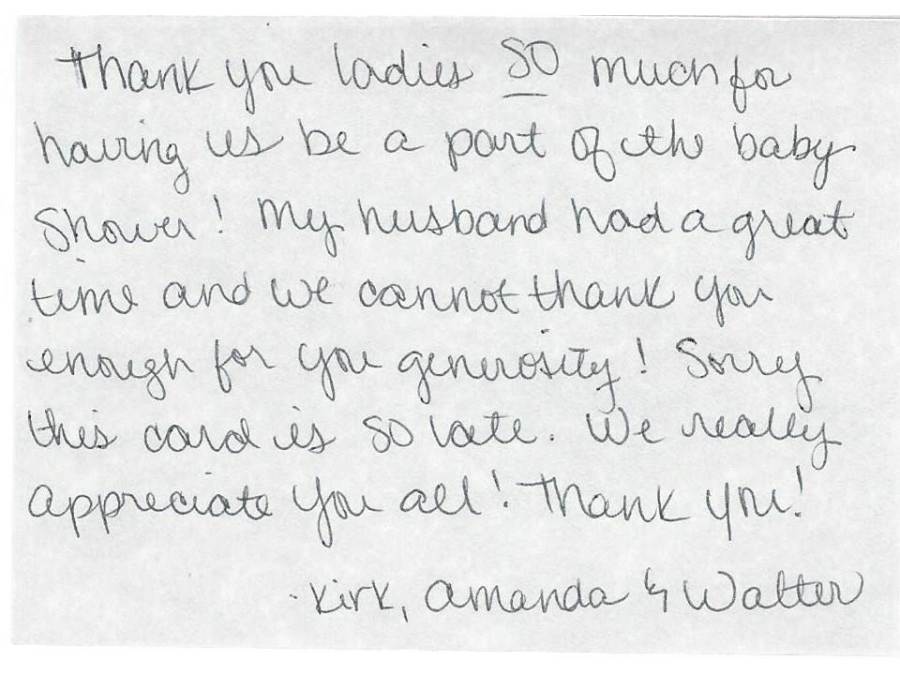 Thank you ladies so much for
having us be a part of the baby
Shower! My husband had a great
time and we cannot thank you
enough for you generosity! Sorry
this card is so late. We really
appreciate you all! Thank you!
-Kirk, Amanda & Walter